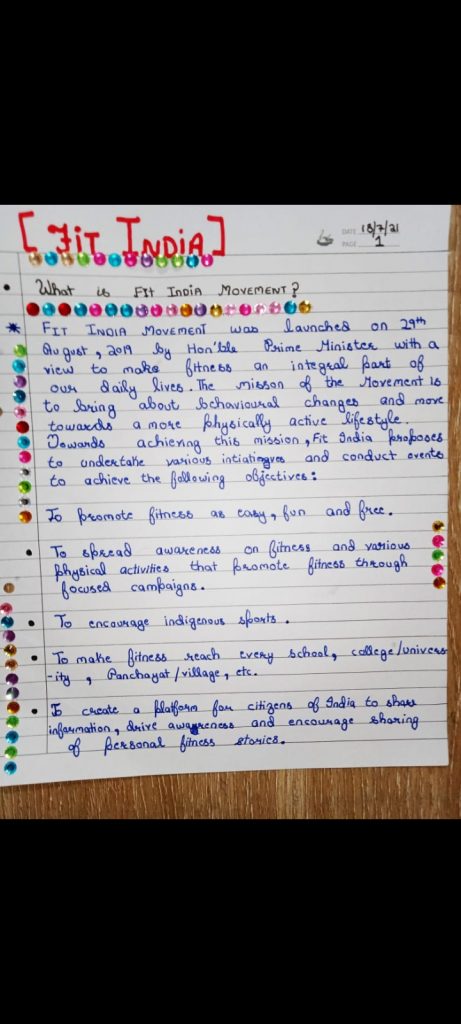 [FiT INDIA]
DATE 18/7/21
PAGE 1
• What is FIt IndiA MOVEMENT?
* FIT INDIA MOVEMENT was launched on 29th
August, 2019 by Hon'ble Prime Minister with a
view to make fitness an integral part of
our daily lives. The misson of the Movement is
to bring about behavioural changes and move
towards a more physically active lifestyle.
Towards achieving this mission, Fit India proposes
to undertake various intiatingves and conduct events
to achieve the following objectives:
To promote fitness as easy, fun and free.
• To spread awareness on fitness and various
physical activities that promote fitness through
focused campaigns.
• To encourage indigenous sports.
• To make fitness reach every school, college/univers
-ity, Panchayat/village, etc.
• create a platform for citizens of India to share
information, drive awareness and encourage sharing
of personal fitness stories.